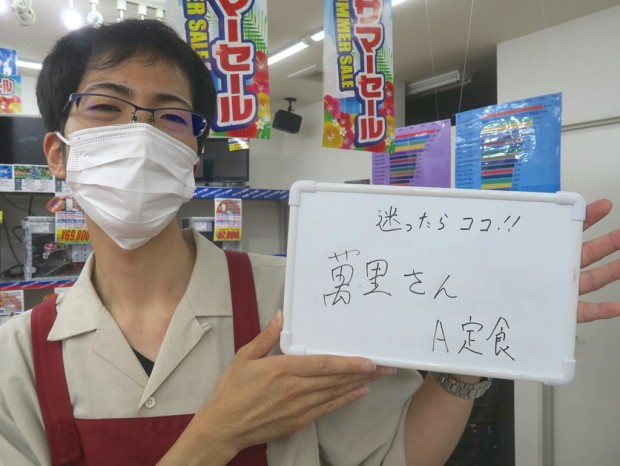 サマーセール
SUMMER SALE
サマーセール
SUMMER SALE
迷ったらココ!!
萬里さん
A定食
¥69,800